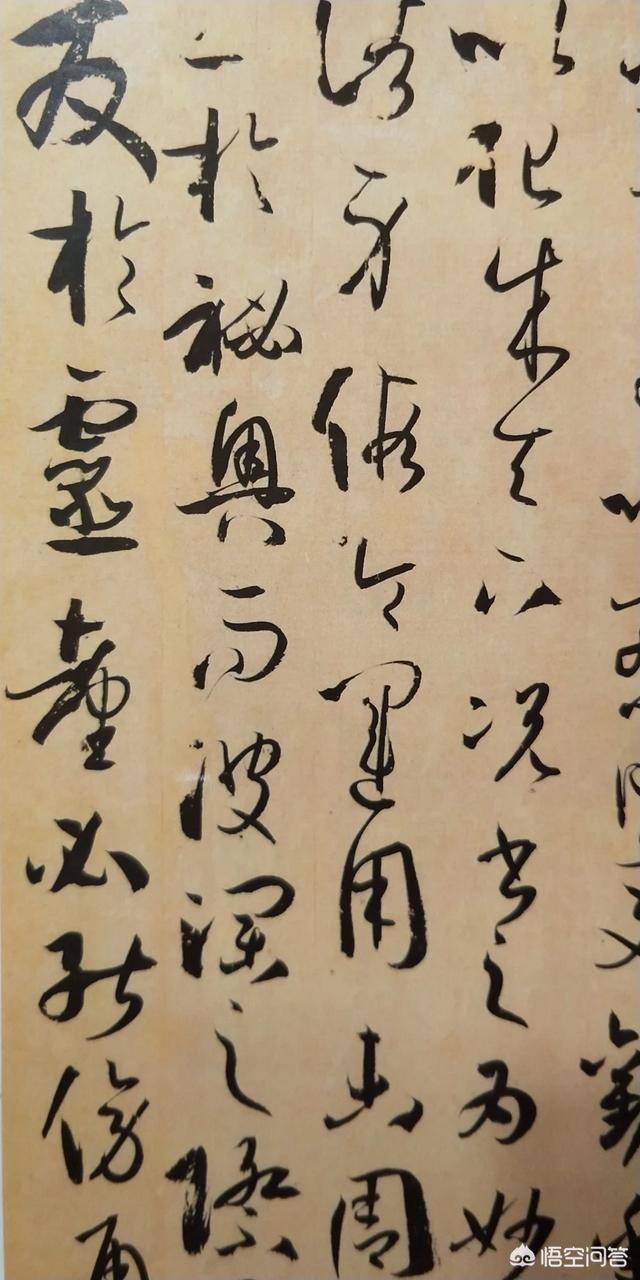 以察時變觀
以化成天下況書之為妙
諸身假令運用未周
工於祕奧而波瀾之際
發於靈臺必能傍通
悟空问答